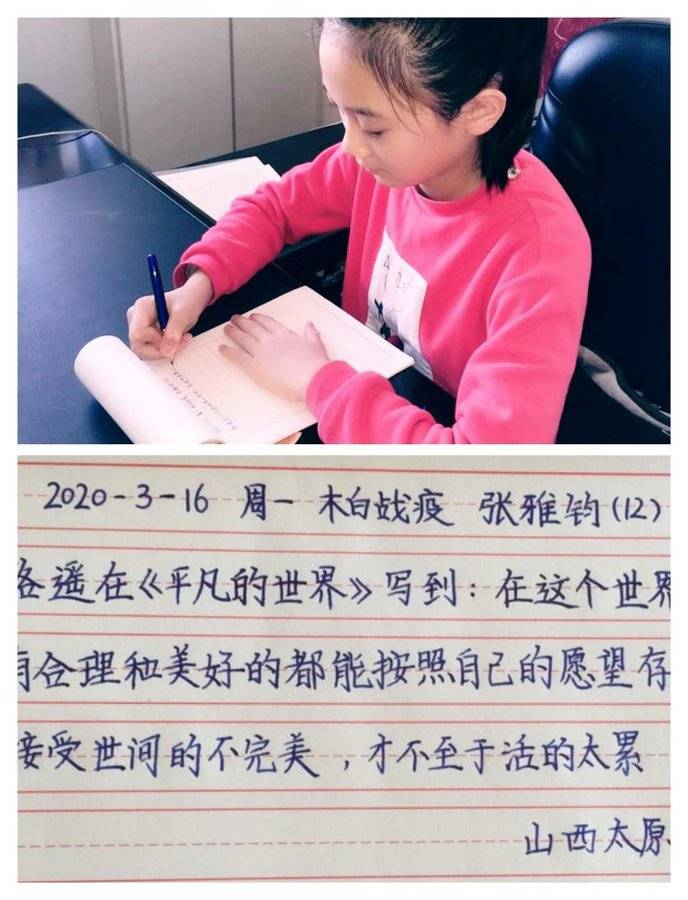 2020-3-16 周一 柏战疫 张雅钧(12)
遥在《平凡的世界》写到：在这个世界
合理和美好的都能按照自己的愿望存
接受世间的不完美，才不至于活的太累
山西太原